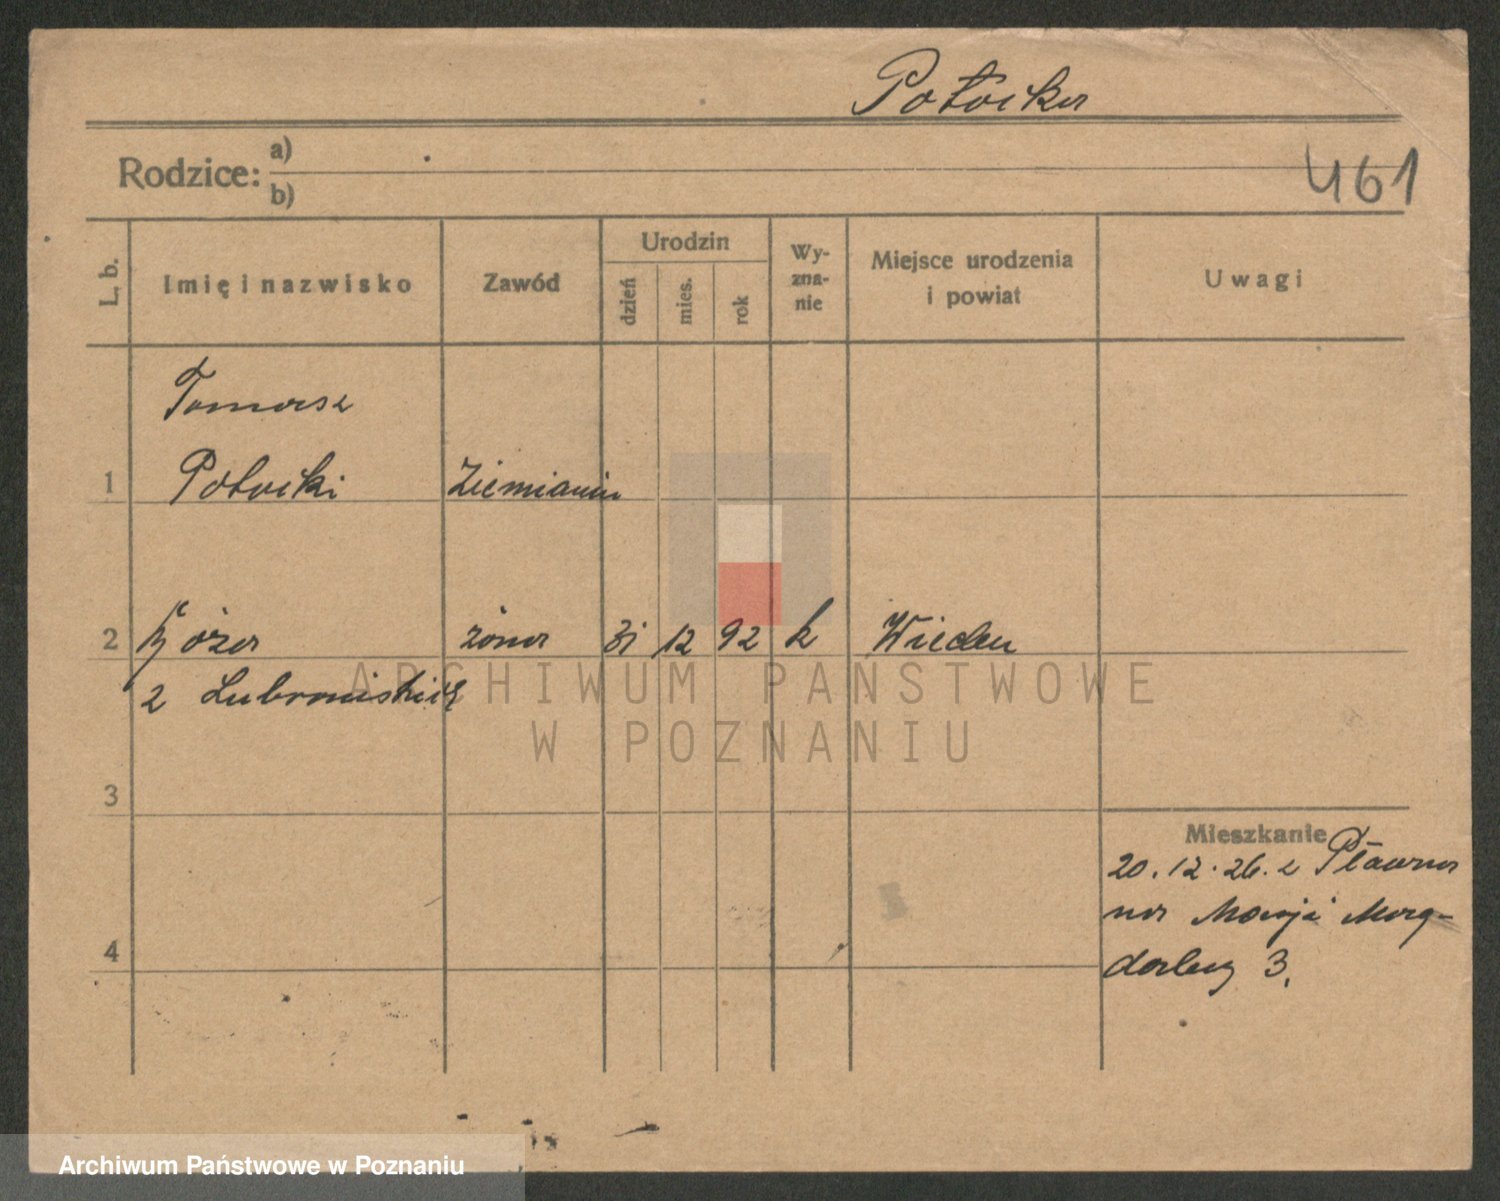 Potocka
Rodzice: a)
b)
461
L. b.
Imię i nazwisko
Zawód
Urodzin
dzień
mies.
rok
Wy-
zna-
nie
Miejsce urodzenia
i powiat
Uwagi
Tomasz
1 Potocki Ziemianin
2 Róża żona 31 12 92 k Wieden
z Lubomirskich
3
4
Mieszkanie
20.12.26. z Pławna
na
3.
ARCHIWUM PAŃSTWOWE
W POZNANIU
Archiwum Państwowe w Poznaniu